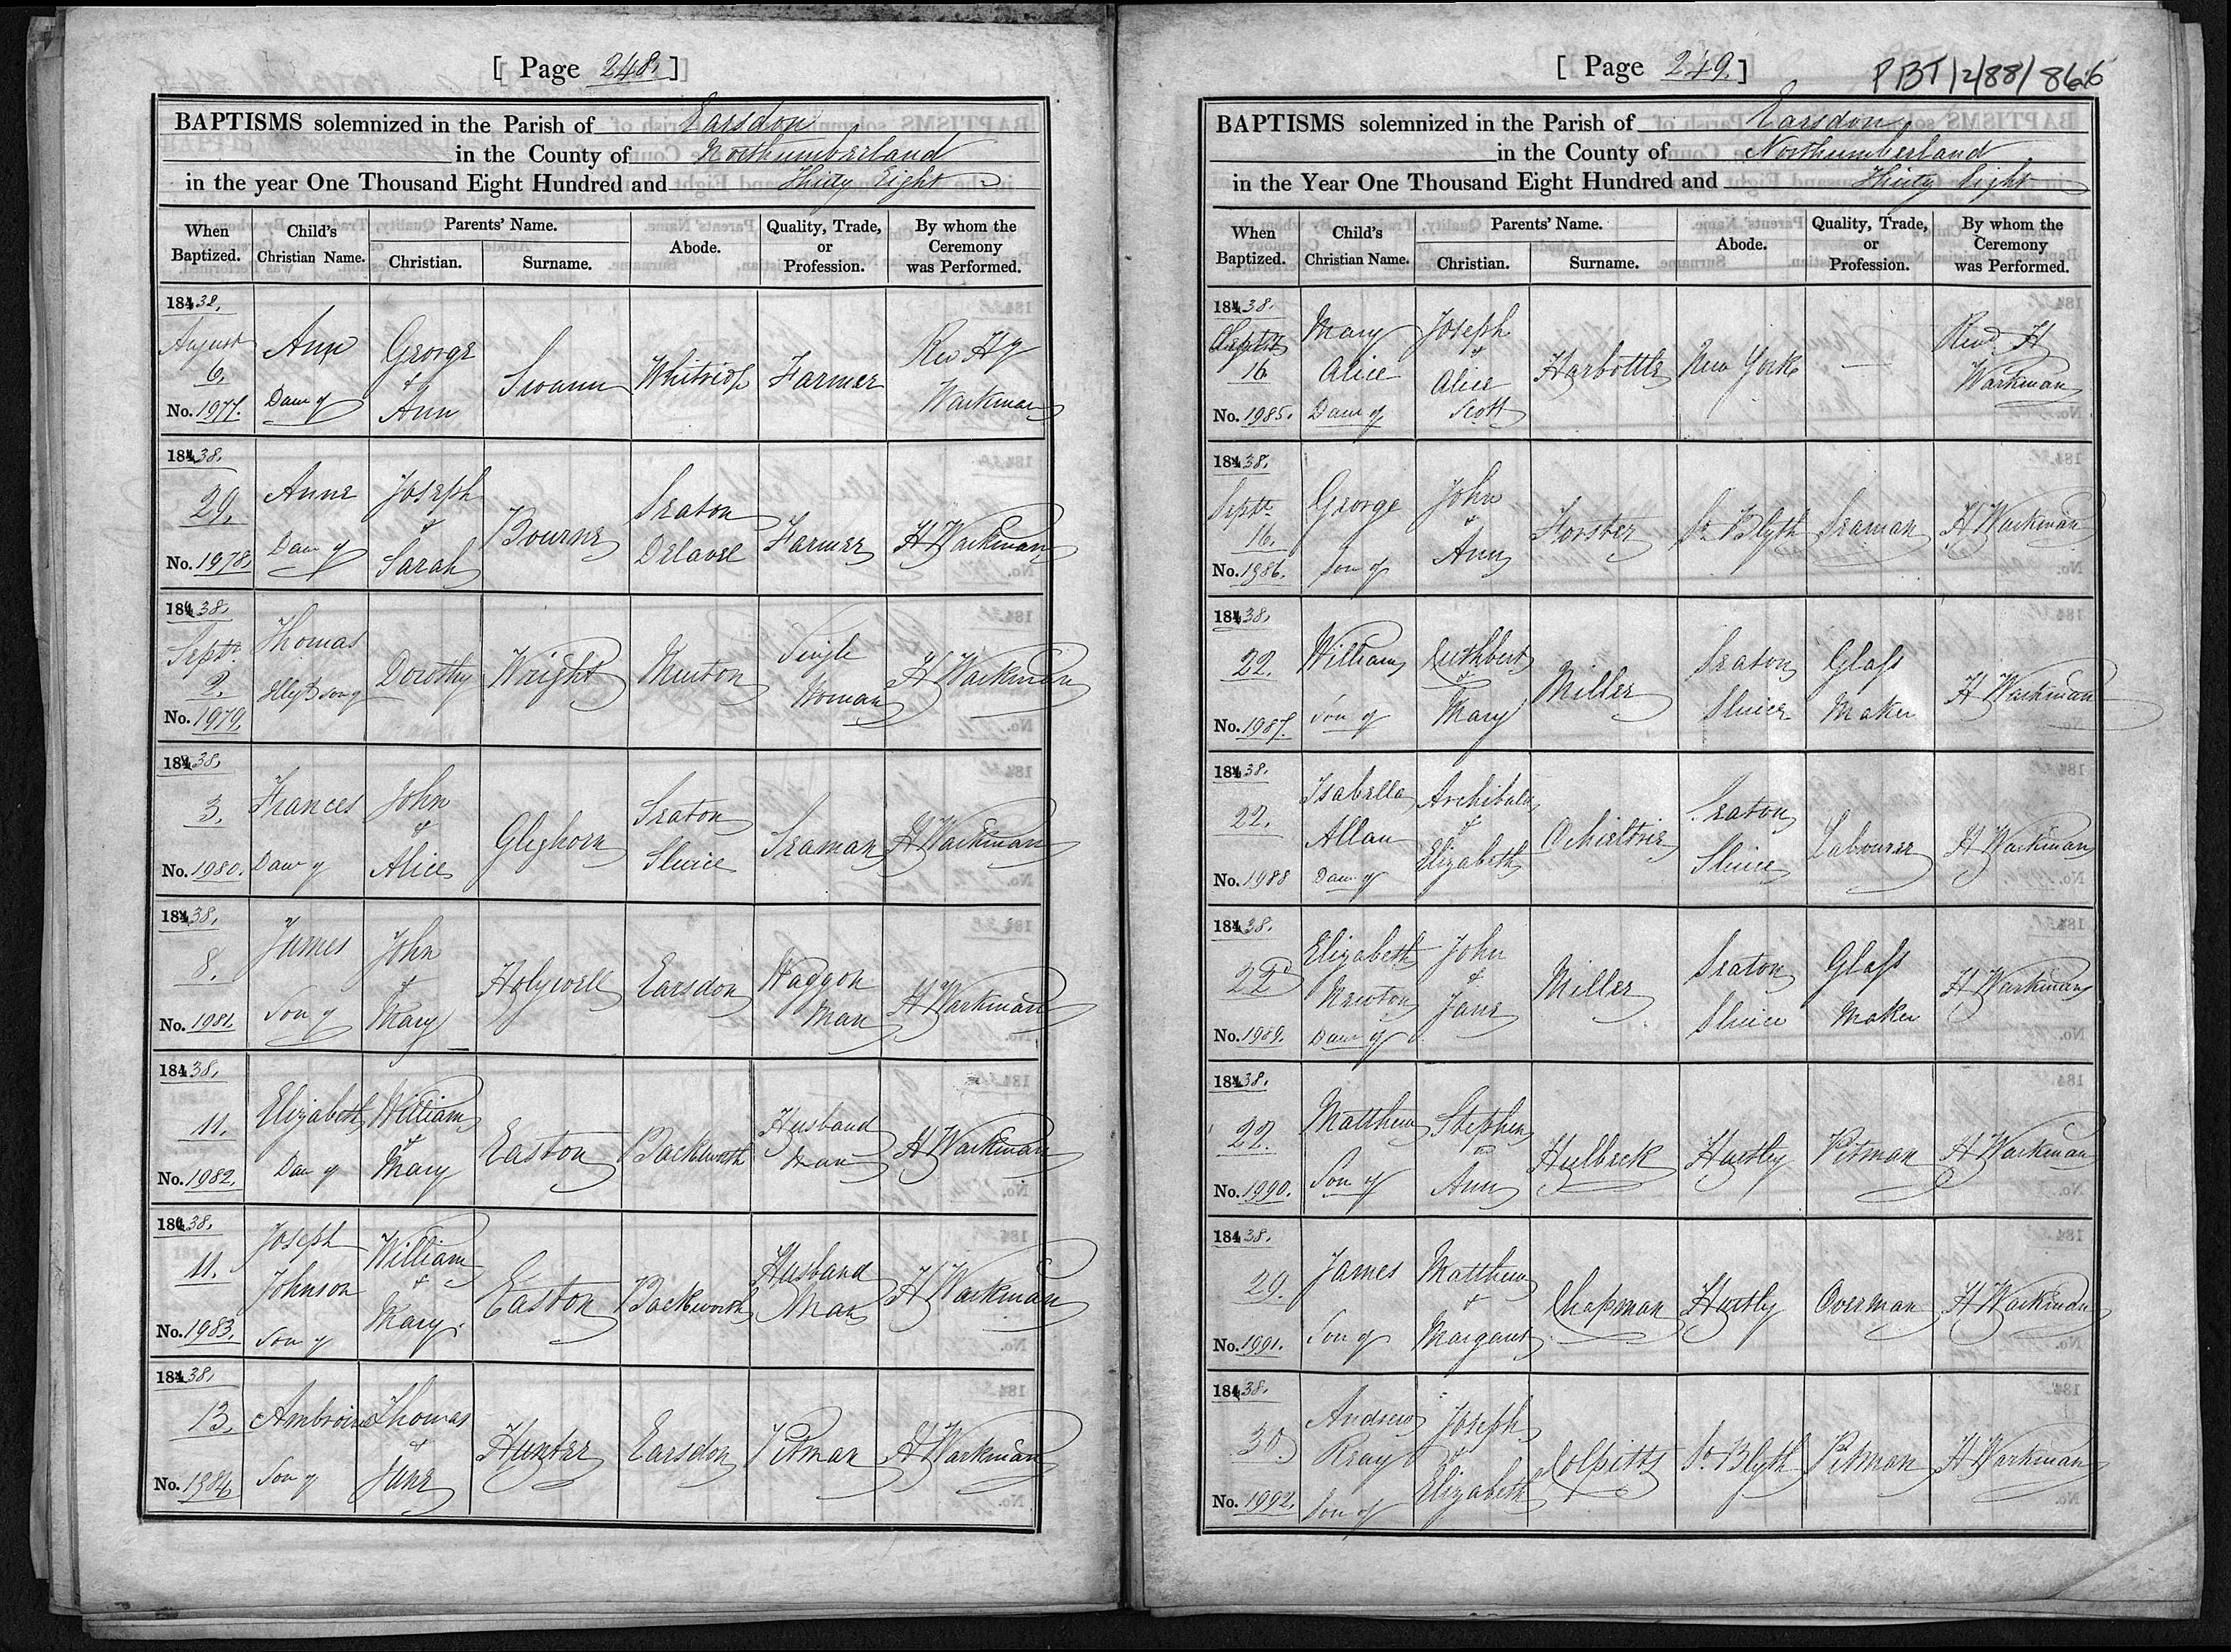 [ Page 248. ]
BAPTISMS solemnized in the Parish of Earsdon
in the County of Northumberland
in the year One Thousand Eight Hundred and Thirty Eight
When Baptized.
Child's Christian Name.
Parents' Name.
Christian.
Surname.
Abode.
Quality, Trade, or Profession.
By whom the Ceremony was Performed.
1838.
August
6.
No. 1977.
Ann
Daur of
George
&
Ann
Swann
Farmer
Rev Hy
Warkman
1838.
29.
No. 1978.
Anne
Daur of
Joseph
&
Sarah
Bourne
Seaton
Delavel
Farmer
H Warkman
1838.
Septr.
2.
No. 1979.
Thomas
son of
Dorothy
Wright
Murton
Single
Woman
H Warkman
1838.
3.
No. 1980.
Frances
Daur of
John
&
Alice
Gleghorn
Seaton
Sluice
Seaman
H Warkman
1838.
8.
No. 1981.
James
Son of
John
&
Mary
Holywell
Earsdon
Waggon
Man
H Warkman
1838.
11.
No. 1982.
Elizabeth
Daur of
William
&
Mary
Easton
Backworth
Husband
man
H Warkman
1838.
11.
No. 1983.
Joseph
Johnson
Son of
William
&
Mary.
Easton
Backworth
Husband
Man
H Warkman
1838.
13.
No. 1984
Son of
Thomas
&
Jane
Hunter
Earsdon
Pitman
H Warkman
[ Page 249. ]
PBT/2/88/866
BAPTISMS solemnized in the Parish of Earsdon
in the County of Northumberland
in the Year One Thousand Eight Hundred and Thirty Eight
When Baptized.
Child's Christian Name.
Parents' Name.
Christian.
Surname.
Abode.
Quality, Trade, or Profession.
By whom the Ceremony was Performed.
1838.
16
No. 1985.
Mary
Alice
Daur of
Joseph
&
Alice
Scott
Harbottle
New York
—
Revd H
Warkman
1838.
Septr.
16.
No. 1986.
George
Son of
John
&
Ann
Forster
So. Blyth
Seaman
H Warkman
1838.
22.
No. 1987.
William
Son of
Cuthbert
&
Mary
Miller
Seaton
Sluice
Glass
Maker
H Warkman
1838.
22.
No. 1988
Isabella
Allan
Daur of
Archibald
&
Elizabeth
Ochieltrie
Seaton
Sluice
Labourer
H Warkman
1838.
22
No. 1989.
Elizabeth
Newton
Daur of
John
&
Jane
Miller
Seaton
Sluice
Glass
Maker
H Warkman
1838.
22.
No. 1990.
Matthew
Son of
Stephen
&
Ann
Hulbeck
Hartley
Pitman
H Warkman
1838.
29.
No. 1991.
James
Son of
Matthew
&
Margaret
Chapman
Hartley
Overman
H Warkman
1838.
30.
No. 1992.
Andrew
Reay
Son of
Joseph
&
Elizabeth
Colpitts
So. Blyth
Pitman
H Warkman